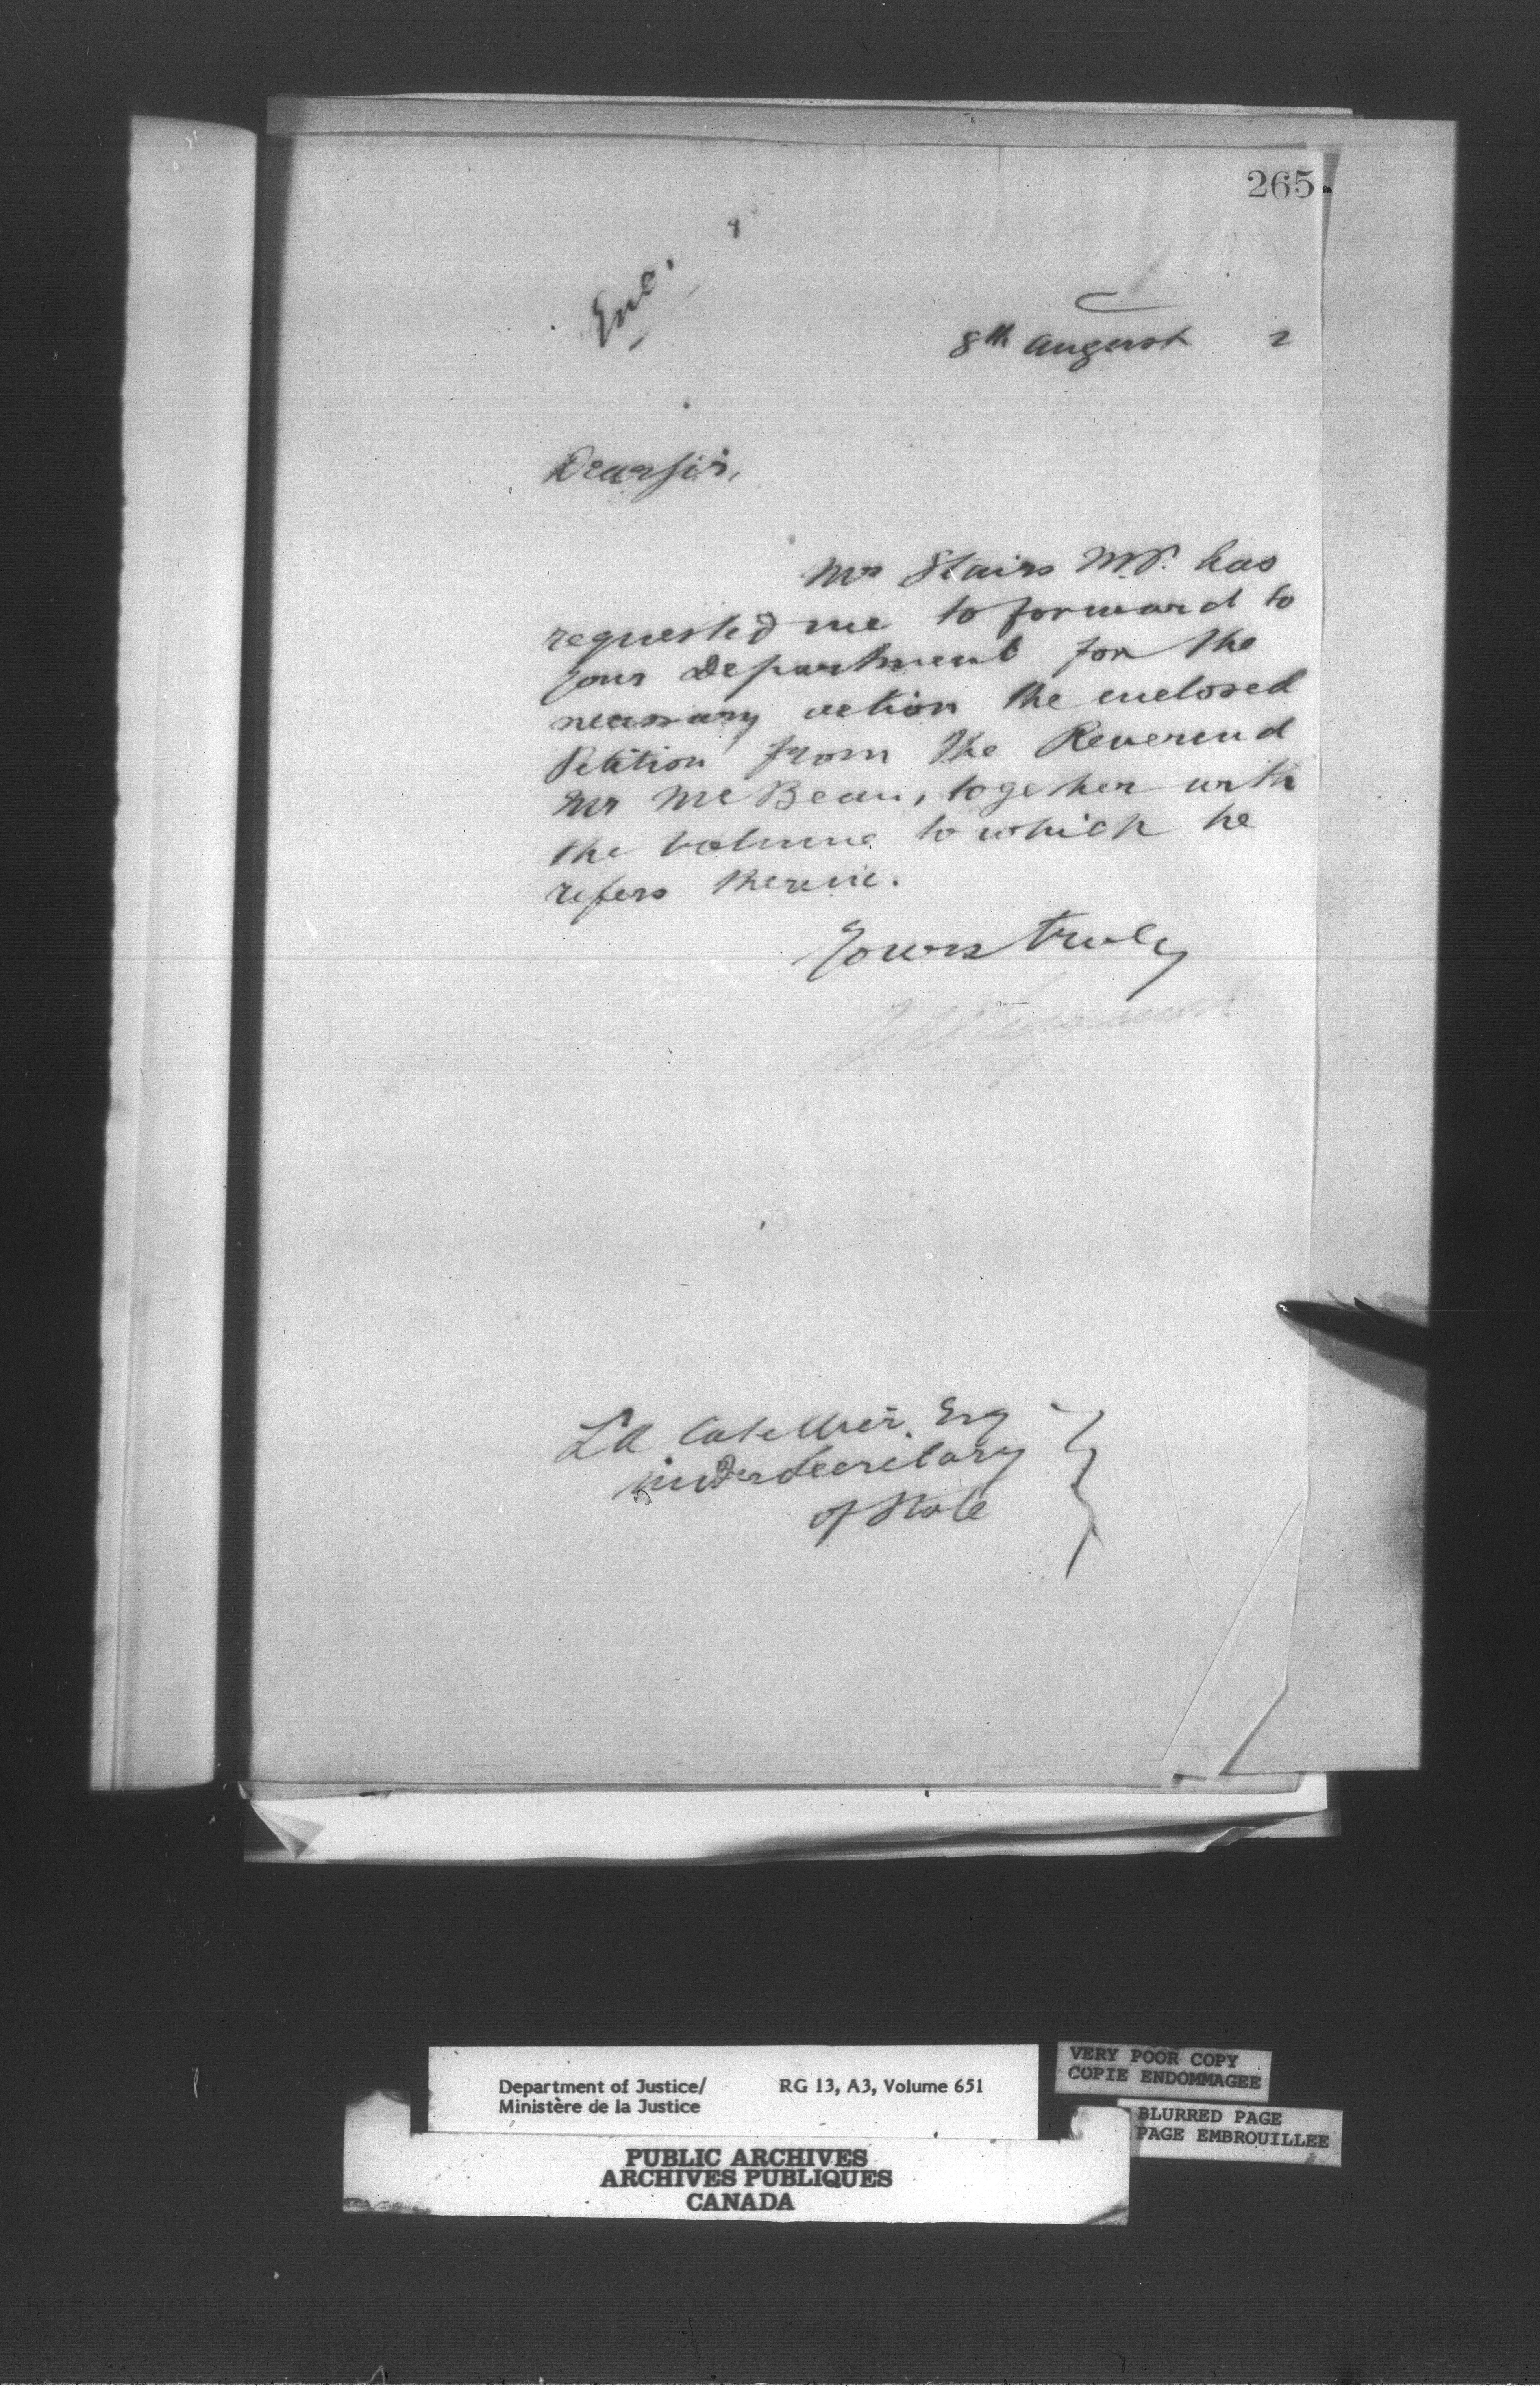 265
Enc.
8th August 2
Dear Sir,
Mr Stairs M.P. has
requested me to forward to
your Department for the
necessary action the enclosed
Petition from the Reverend
Mr McBean, together with
the volume to which he
refers therein.
Yours truly
L A Catellier Esq
Under Secretary
of State
Department of Justice/ RG 13, A3, Volume 651
Ministère de la Justice
PUBLIC ARCHIVES
ARCHIVES PUBLIQUES
CANADA
VERY POOR COPY
COPIE ENDOMMAGEE
BLURRED PAGE
PAGE EMBROUILLEE